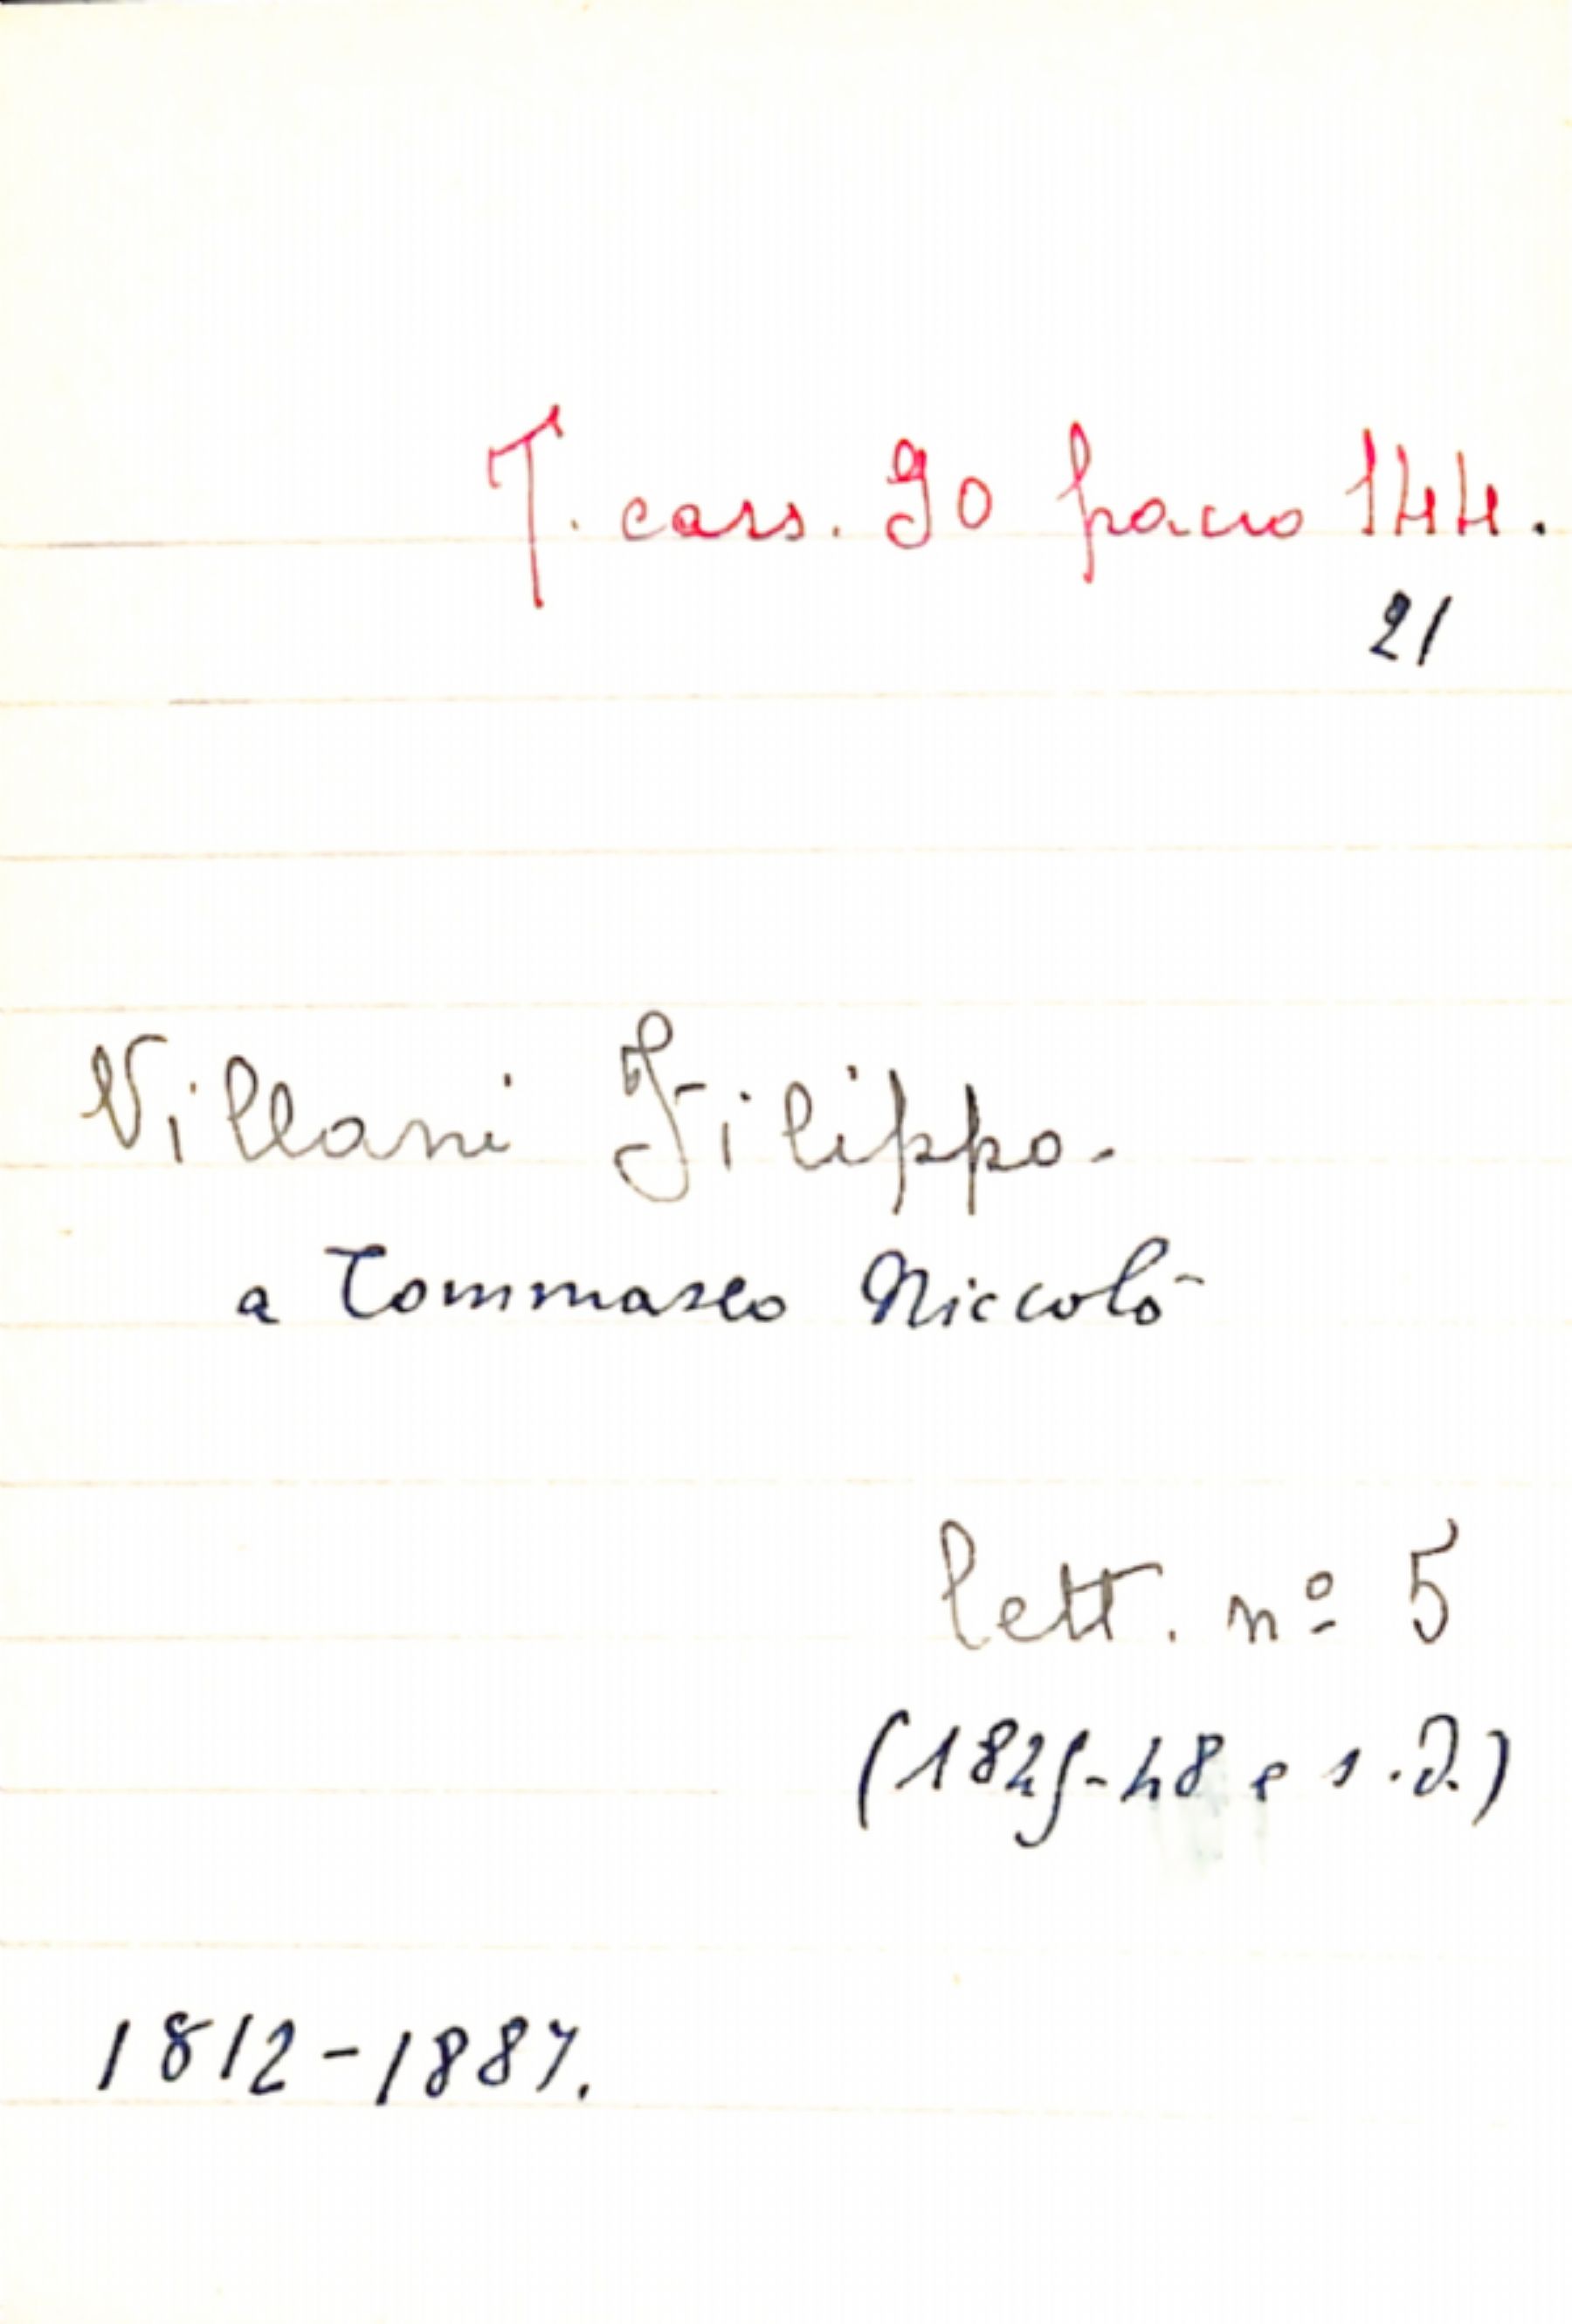 T. cass. 90 pacco 144.
21
Villani Filippo.
a Tommaseo Niccolò
lett. nº 5
(1825-48 e s.d.)
1812-1887.